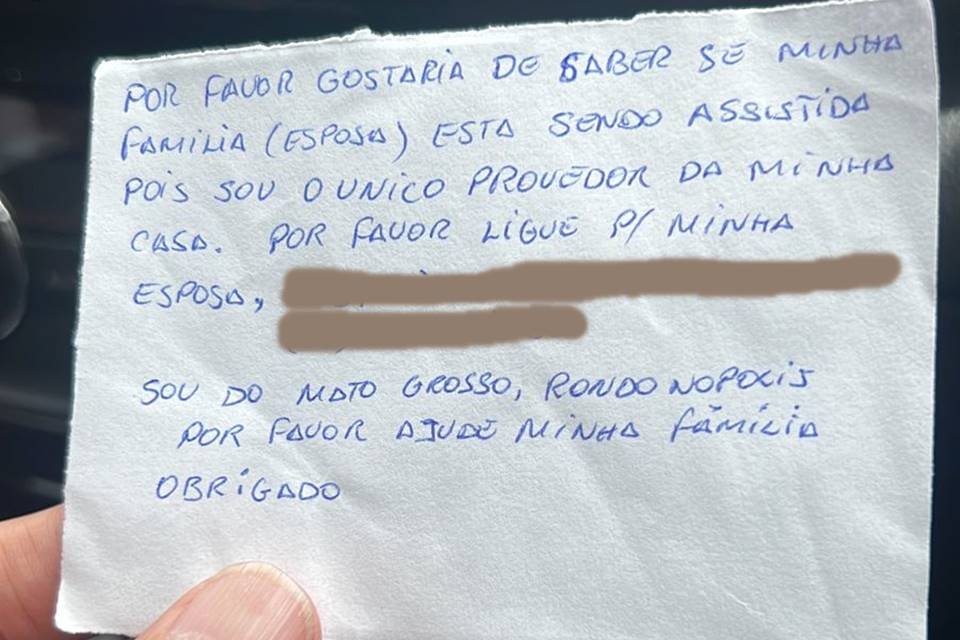 POR FAVOR GOSTARIA DE SABER SE MINHA
FAMILIA (ESPOSA) ESTA SENDO ASSISTIDA
POIS SOU O UNICO PROVEDOR DA MINHA
CASA. POR FAVOR LIGUE P/ MINHA
ESPOSA,
SOU DO MATO GROSSO, RONDONOPOLIS
POR FAVOR AJUDE MINHA FAMÍLIA
OBRIGADO